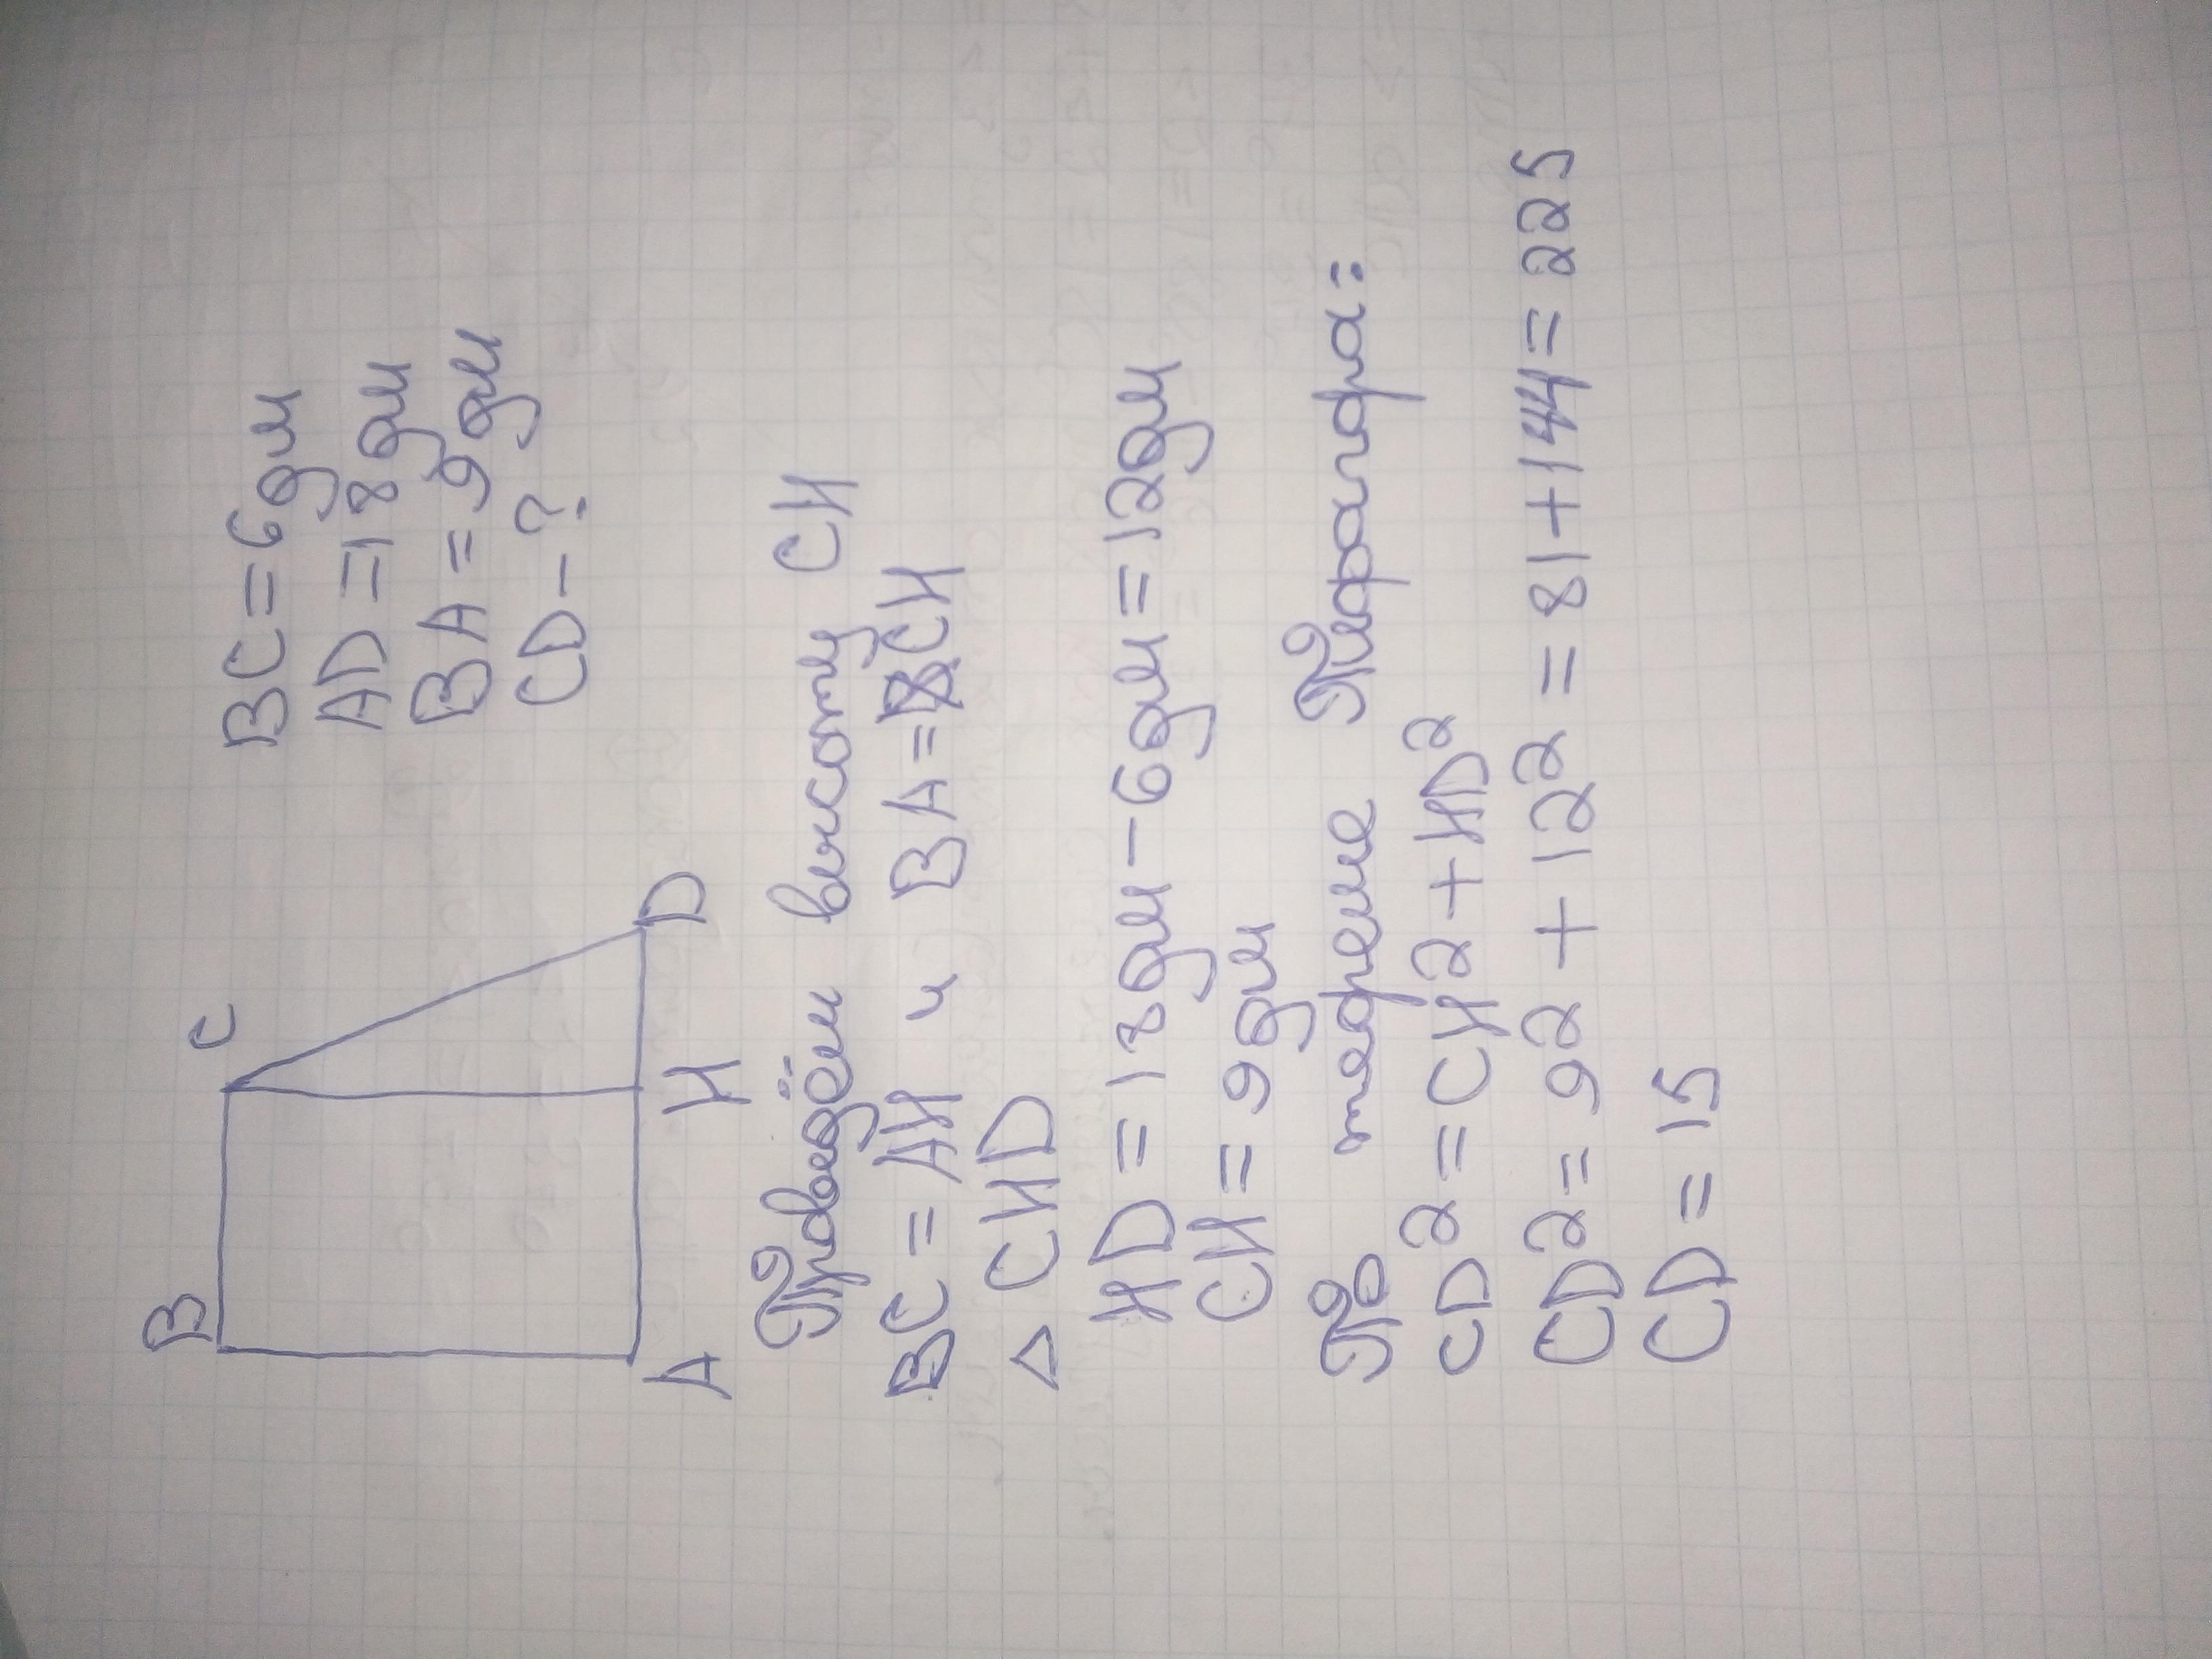 B
C
A
H
D
BC=6дм
AD=18дм
BA=9дм
CD-?
Проведём высоту CH
BC=AH и BA=CH
△ CHD
HD=18дм-6дм=12дм
CH=9дм
По теореме Пифагора:
CD²=CH²+HD²
CD²=9²+12²=81+144=225
CD=15